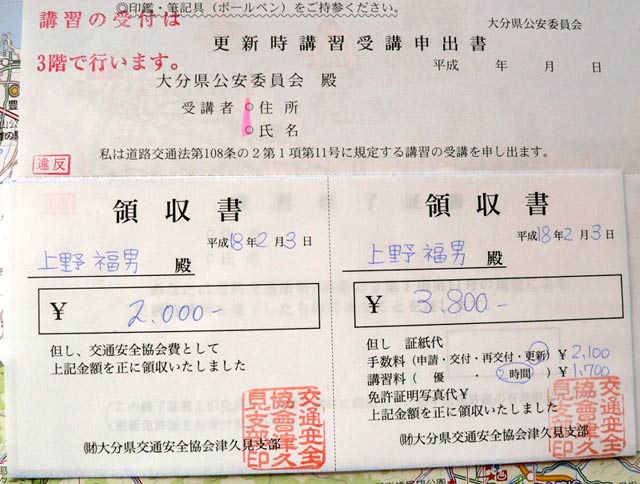 ◎印鑑・筆記具（ボールペン）をご持参ください。
講習の受付は
3階で行います。
大分県公安委員会
更新時講習受講申出書
平成　年　月　日
大分県公安委員会　殿
受講者　○住所
○氏名
違反
私は道路交通法第108条の2第1項第11号に規定する講習の受講を申し出ます。
領収書
平成18年2月3日
上野福男　殿
￥　2,000-
但し、交通安全協会費として
上記金額を正に領収いたしました
㈶大分県交通安全協会津久見支部
交通安全
協會津久
見支部印
領収書
平成18年2月3日
上野福男　殿
￥　3,800-
但し　証紙代
手数料（申請・交付・再交付・更新）￥2,100
講習料（　優　・　2時間　）￥1,700
免許証用写真代￥
上記金額を正に領収いたしました
㈶大分県交通安全協会津久見支部
交通安全
協會津久
見支部印